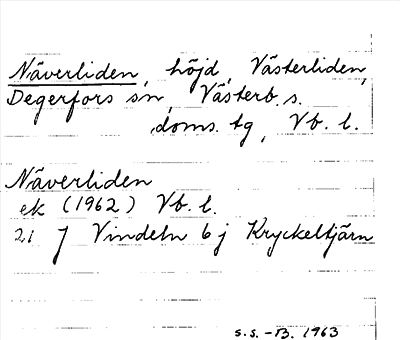 Näverliden, höjd, Västerliden,
Degerfors sn, Västerb. s.
doms. tg, Vb. l.
Näverliden
ek (1962) Vb. l.
21 J Vindeln 6 j Kryckeltjärn
S.S. -B. 1963